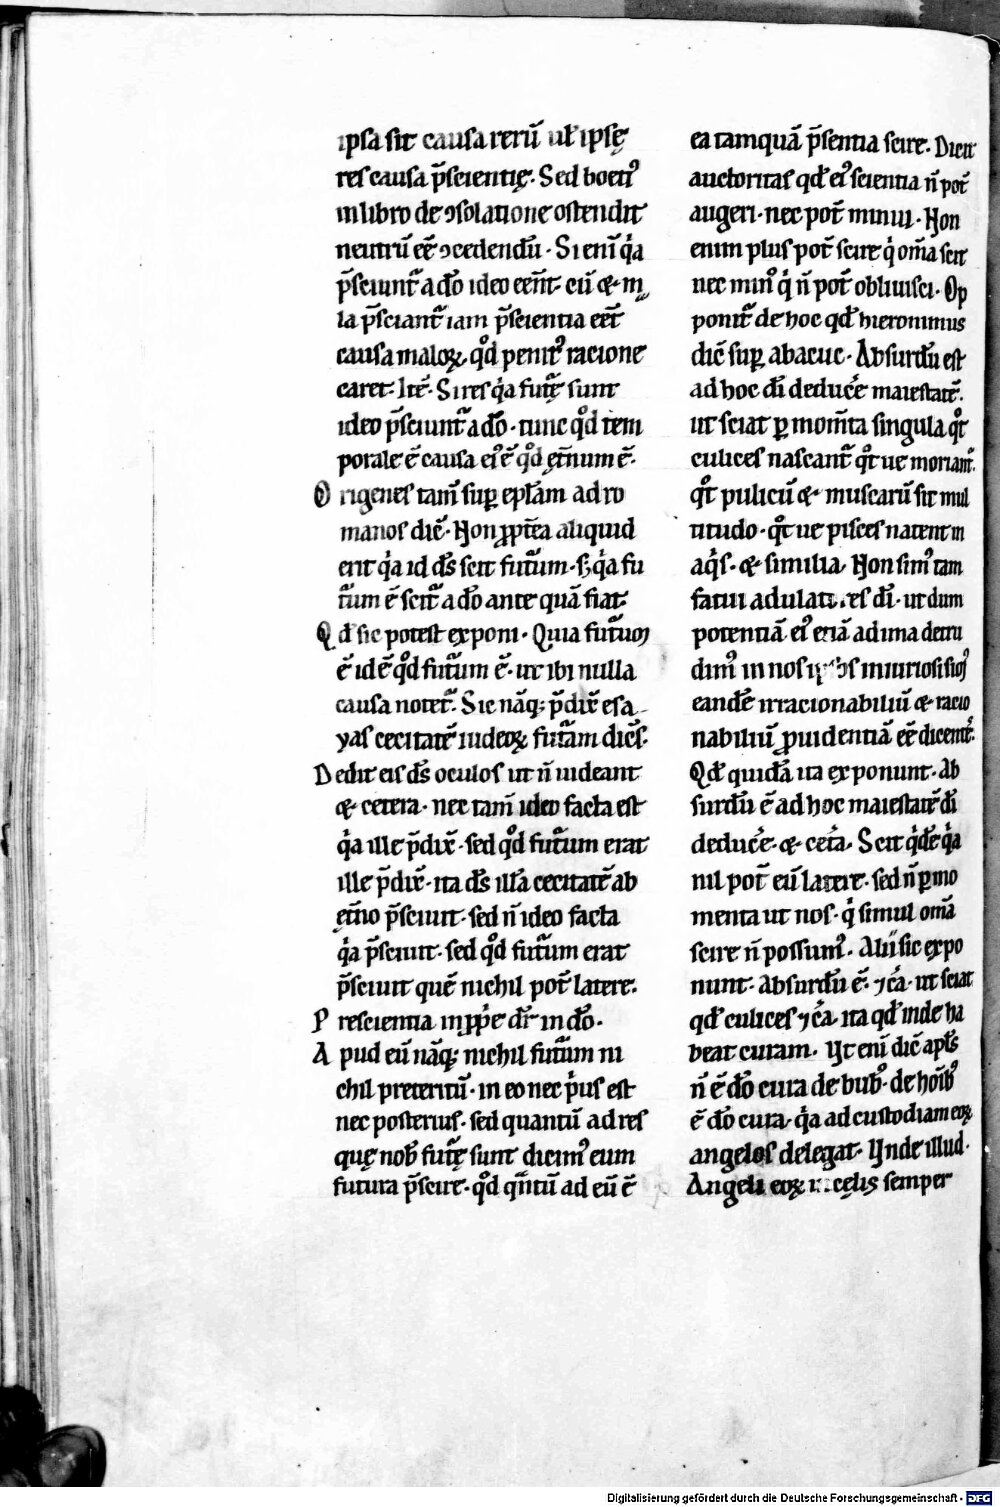 ipsa sit causa rerū ul̄ ipsę
res causa p̄scientię. Sed boeti᷒
in libro de ꝯsolatione ostendit
neutrū eē ꝯcedendū. Si eni̅ qͥa
p̄sciunt᷑ a dō ideo eēnt. cū & m
la p̄sciant᷑ iam p̄scientia eēt
causa maloꝝ. qͦd penit᷒ racione
caret. Itē. Si res qͥa futę sunt
ideo p̄sciunt᷑ a dō. tunc qͦd tem
porale ē causa ei᷒ ē qͦd et̄num ē.
Origenes tam̄ suꝑ epl̄am ad ro
manos dic̄. Non ꝓpt̄ea aliquid
erit qͥa id ds̄ scit futurum. sꝫ qͥa fu
tᷓum ē scit᷑ a dō ante quā fiat.
Qd̄ sic potest exponi. Quia futurū
ē idē qͦd futurum ē. ut ibi nulla
causa notet᷑. Sic nāqꝫ p̄dix̄ esa
yas cecitatē iudeoꝝ futᷓam dic̄s.
Dedit eis ds̄ oculos ut n̄ uideant
& cetera. nec tam̄ ideo facta est
qͥa ille p̄dix̄. sed qͦd futᷓum erat
ille p̄dix̄. ita ds̄ illā cecitatē ab
et̄no p̄sciuit. sed n̄ ideo facta
qͥa p̄sciuit. sed qͦd futᷓum erat
p̄sciuit quē nichil pot̄ latere.
Prescientia inꝓpͥe dr̄ in dō.
Apud eū nāqꝫ nichil futᷓum ni
chil preteritū. in eo nec pͥus est
nec posterius. sed quantū ad res
quę nob̄ futę sunt dicim᷒ eum
futura p̄scire. qͦd qn̄tū ad eū ē
ea tamquā p̄sentia scire. Dicit
auctoritas qd̄ ei᷒ scientia n̄ pot̄
augeri. nec pot̄ minui. Non
enim plus pot̄ scire qͥ om̄a scit
nec min᷒ qͥ n̄ pot̄ obliuisci. Op
ponit᷑ de hoc qd̄ hieronimus
dic̄ suꝑ abacuc. Absurdū est
ad hoc dī deducͤe maiestatē.
ut sciat ꝑ mom̄ta singula qͦt
culices nascant᷑ qͦt ue moriant᷑.
qͦt pulicū & muscarū sit mul
titudo. qͦt ue pisces natent in
aqͥs. & similia. Non sim᷒ tam
fatui adulatores dī. ut dum
potentiā ei᷒ etiā ad ima detru
dim᷒ in nos ipsos iniuriosi sim᷒
eandē irracionabiliū & racio
nabiliū ꝓuidentiā eē dicentͤ.
Qd̄ quidā ita exponunt. Ab
surdū ē ad hoc maiestatē dī
deducͤe. & cetᷓa. Scit qͥdē qͥa
nil pot̄ eū latere. sed n̄ ꝑ mo
menta ut nos. qͥ simul om̄a
scire n̄ possum᷒. Alii sic expo
nunt. Absurdū ē. ⁊ cͣa. ut sciat
qd̄ culices ⁊ cͣa. ita qd̄ inde ha
beat curam. Ut eni̅ dic̄ apl̄s
n̄ ē dō cura de bub᷒. de hoīb᷒
ē dō cura. qͥa ad custodiam eoꝝ
angelos delegat. Unde illud.
Angeli eoꝝ in celis semper
Digitalisierung gefördert durch die Deutsche Forschungsgemeinschaft - DFG